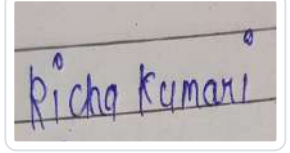 Richa Kumari